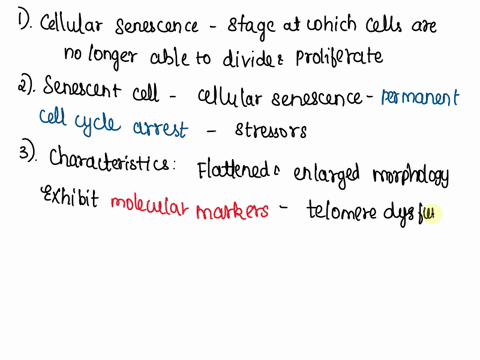 1). Cellular Senescence - Stage at which cells are
no longer able to divide & proliferate
2). Senescent cell - cellular senescence - permanent
cell cycle arrest - stressors
3). Characteristics: Flattened & enlarged morphology
Exhibit molecular markers - telomere dysfu